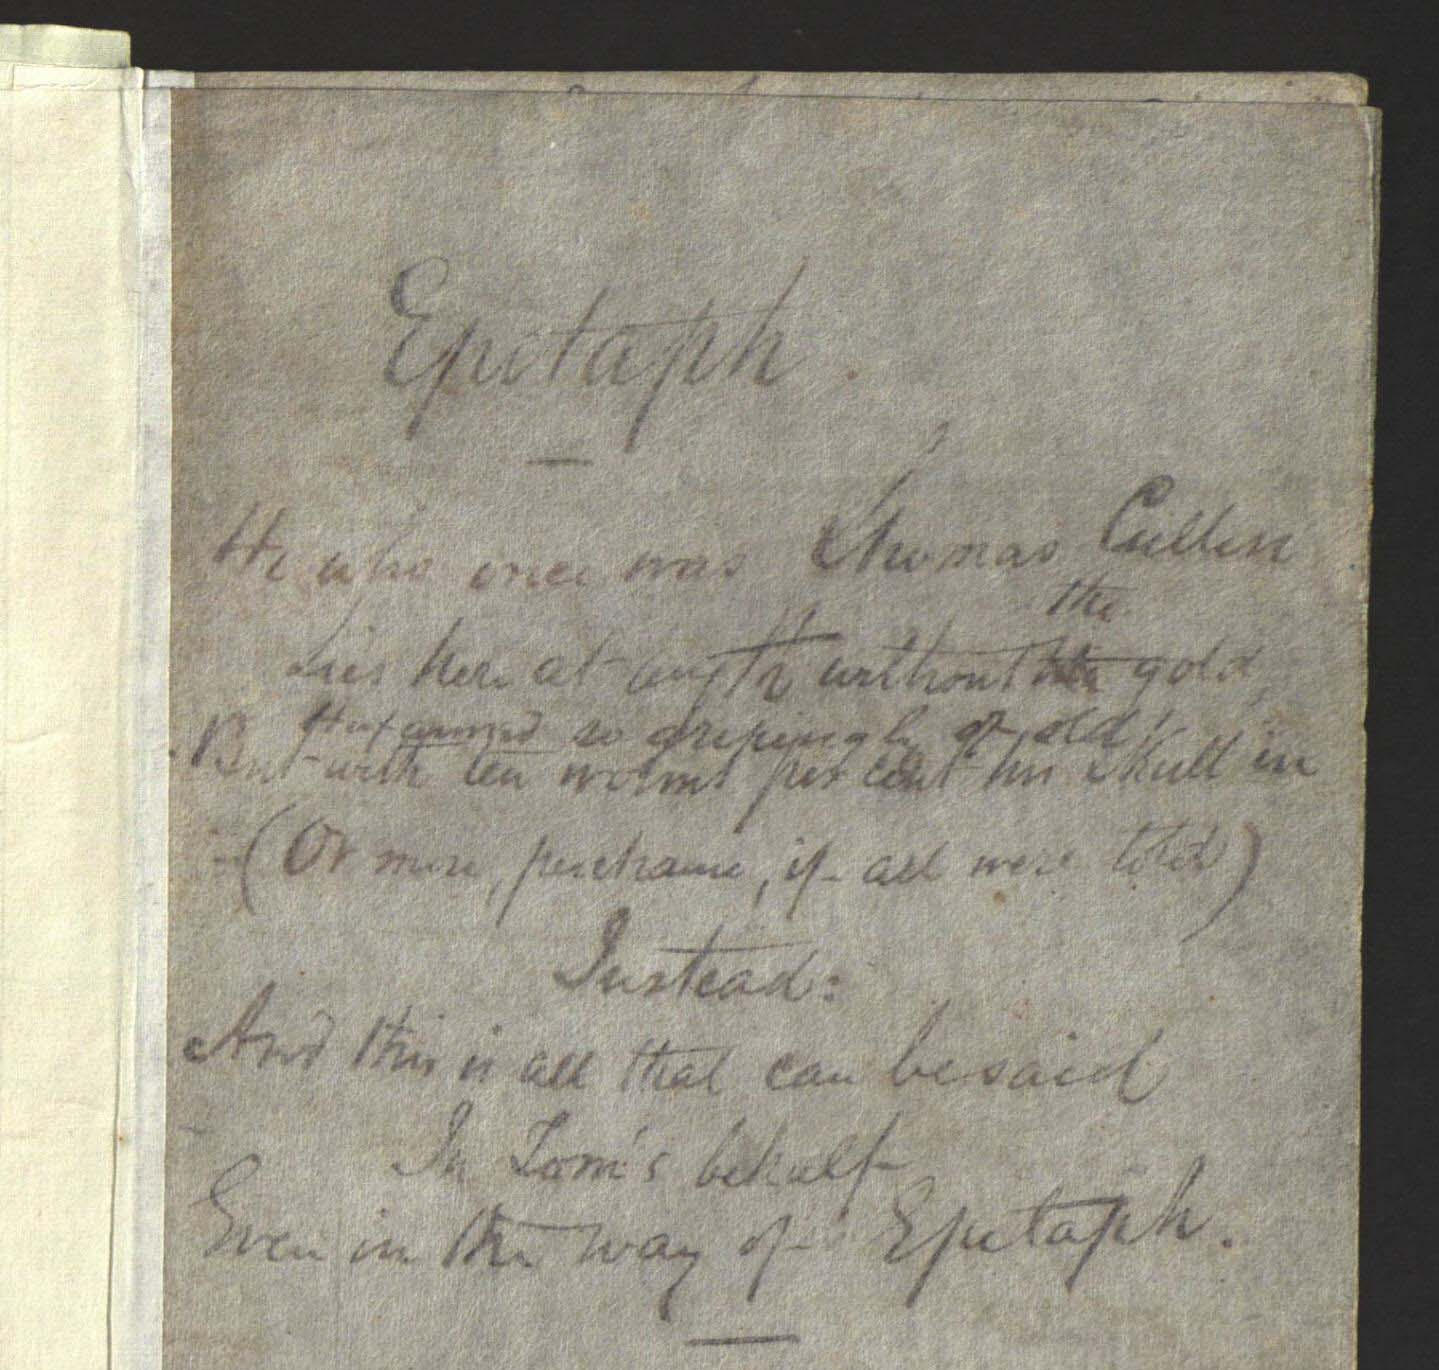 Epitaph.
He who once was Thomas Cullen
the
Lies here at length without gold,
He earned so gripingly of old;
But with ten worms per cent his skull in
(Or more, perchance, if all were told)
Instead:
And this is all that can be said
In Tom's behalf
Even in the way of Epitaph.